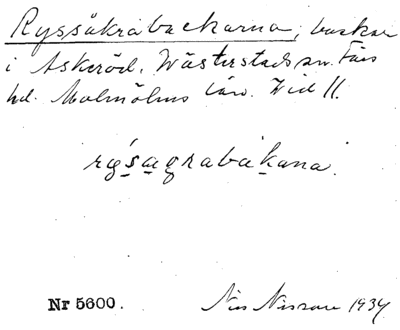 Ryssåkrabackarna, backar
i Askeröd, Wästerstads sn. Färs
hd. Malmöhus län. Wid 11.
rysagrabakana
Nr 5600.
Nils Nilsson 1934